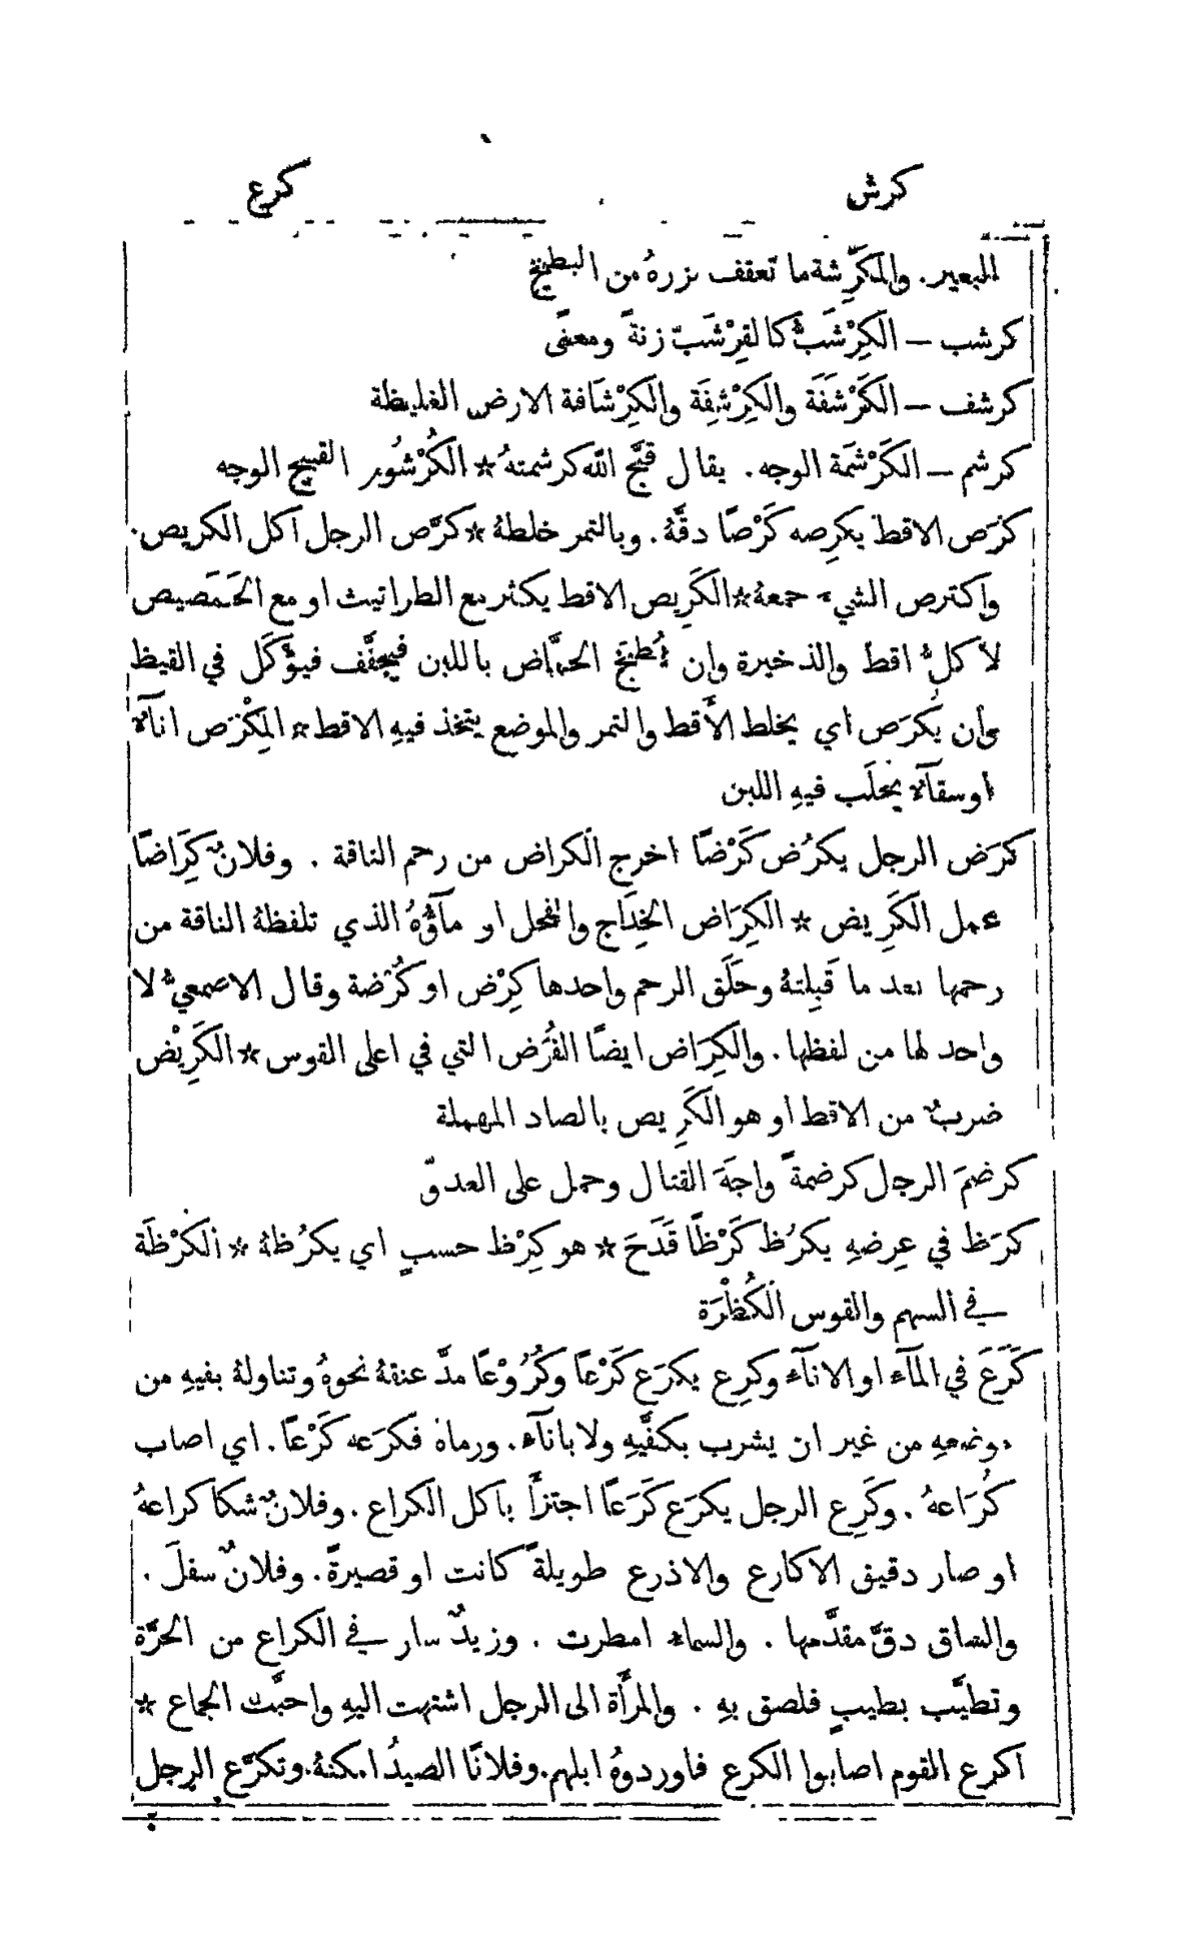 كرش
كرع
للبعير. والمكرِّشة ما تعقف بزرهُ من البطيخ
كرشب — الكِرْشَبُّ كالقِرْشَبّ زنةً ومعنًى
كرشف — الكَرْشَفَة والكِرْشِفَة والكِرْشَافة الارض الغليظة
كرشم — الكَرْشَمَة الوجه. يقال قبَّح الله كرشمتهُ * الكُرْشُوم القبيح الوجه
كرَص الاقط يكرِصه كَرْصًا دقَّهُ. وبالتمر خلطهُ * كرَّص الرجل اكل الكريص.
واكترص الشيء جمعهُ * الكَرِيص الاقط يكثر مع الطراثيث او مع الحَمَصيص
لا كلُّ اقط والذخيرة وان يُطبَخ الحمَّاض باللبن فيجفَّف فيؤكَل في القيظ
وأن يُكرَص اي يخلط الأَقط والتمر والموضع يتخذ فيهِ الاقط * المِكْرَص اناآء
او سقآء يحلَب فيهِ اللبن
كرَض الرجل يكرُض كَرْضًا اخرج الكراض من رحم الناقة . وفلانٌ كِرَاضًا
عمل الكَرِيض * الكِرَاض الخِدَاج والفحل او مآؤُهُ الذي تلفظهُ الناقة من
رحمها بعد ما قَبِلتهُ وحَلَق الرحم واحدها كِرْض او كُرْضة وقال الاصمعيُّ لا
واحد لها من لفظها. والكِرَاض ايضًا الفُرَض التي في اعلى القوس * الكَرِيْض
ضربٌ من الاقط او هو الكَرِيص بالصاد المهملة
كرضمَ الرجل كرضمةً واجَهَ القتال وحمل على العدوّ
كرَظ في عِرضهِ يكرُظ كَرْظًا قَدَحَ * هو كِرْظ حسبٍ اي يكرُظهُ * الكُرْظَة
في السهم والقوس الكُظْرَة
كَرَعَ في المآء او الانآء وكرِع يكرَع كَرْعًا وكُرُوْعًا مدَّ عنقهُ نحوهُ وتناولهُ بفيهِ من
موضعهِ من غير ان يشرب بكفَّيهِ ولا بانآء. ورماهُ فكرَعه كَرْعًا. اي اصاب
كُرَاعهُ . وكَرِع الرجل يكرَع كَرَعًا اجتزأَ باكل الكراع. وفلانٌ شكا كراعهُ
او صار دقيق الاكارع والاذرع طويلةً كانت او قصيرةً. وفلانٌ سفلَ .
والساق دقَّ مقدَّمها . والسماء امطرت . وزيدٌ سار في الكراع من الحرَّة
وتطيَّب بطيبٍ فلصق بهِ . والمرأَة الى الرجل اشتهت اليهِ واحبَّت الجماع *
اكرع القوم اصابوا الكرع فاوردوهُ ابلهم. وفلانًا الصيدُ امكنهُ. وتكرَّع الرجل